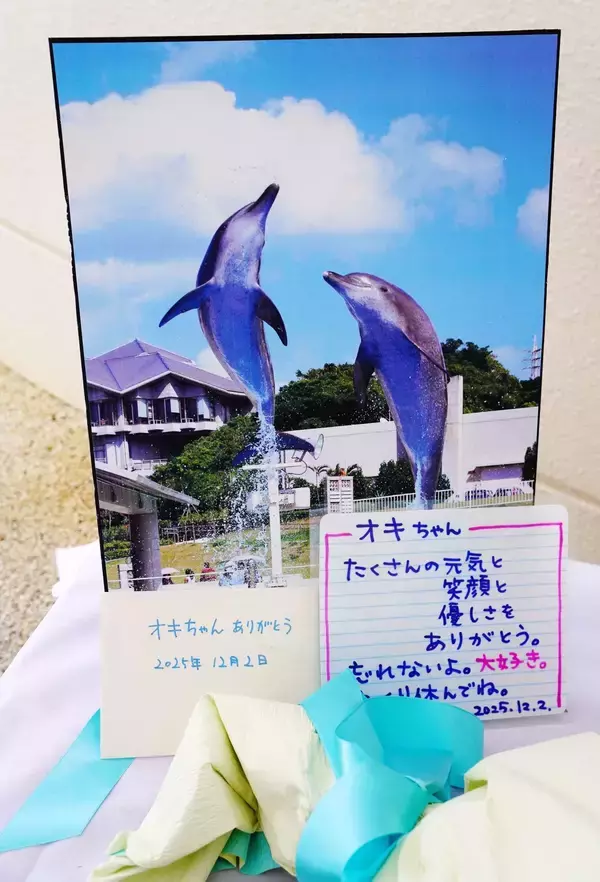 オキちゃん ありがとう
2025年 12月2日
オキちゃん
たくさんの元気と
笑顔と
優しさを
ありがとう。
忘れないよ。大好き。
くり休んでね。
2025.12.2.